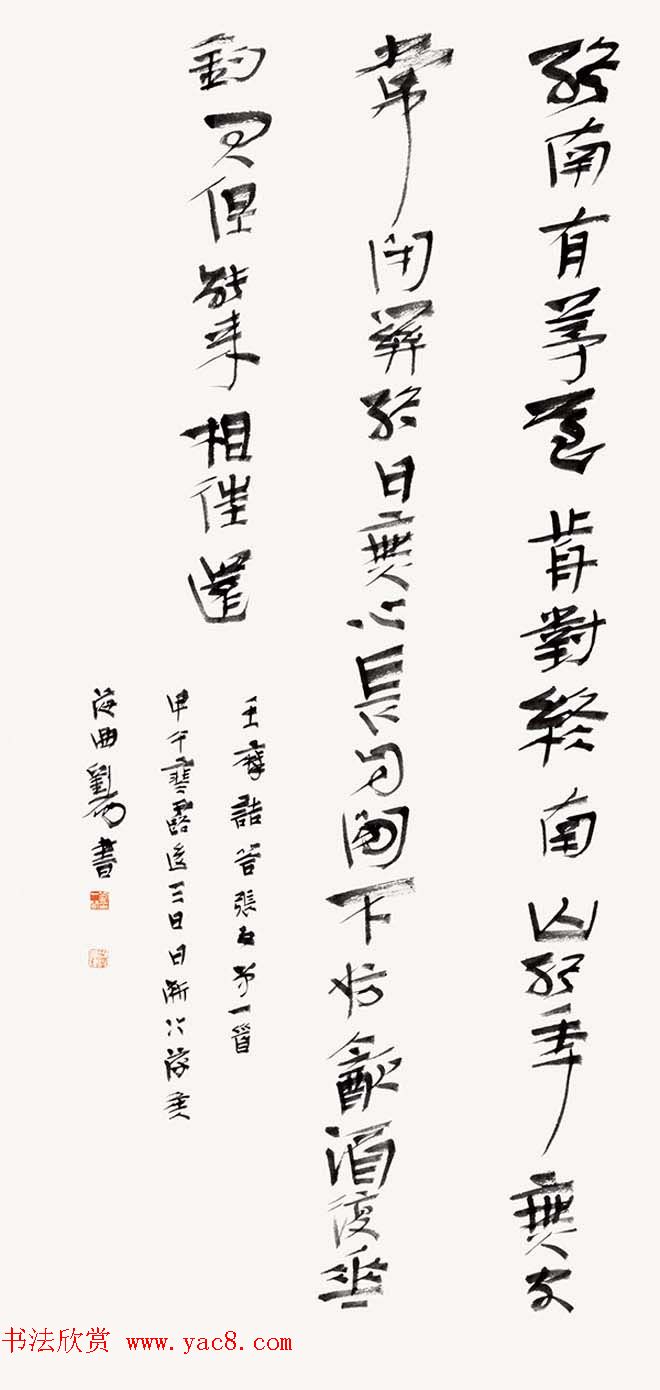 終南有茅屋前對終南山終年無客
常閉關終日無心長自閒不妨飲酒復垂
釣君但能來相往還
王摩詰答張五弟一首
甲午寒露後三日日漸
海曲劉書
书法欣赏 www.yac8.com